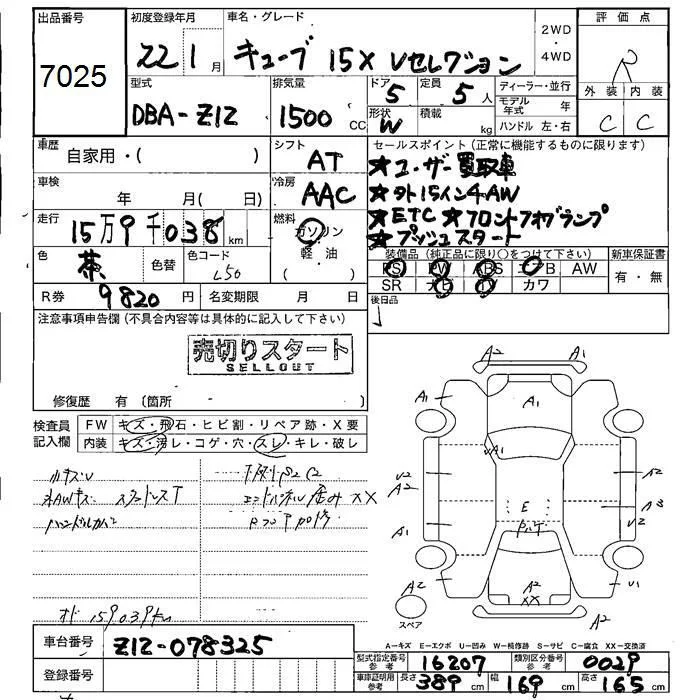 出品番号
7025
初度登録年月
22 1月
車名・グレード
キューブ 15X Vセレクション
2WD・4WD
評価点
R
型式
DBA-Z12
排気量
1500 CC
ドア
5
定員
5人
形状
W
積載
kg
ディーラー・並行
モデル年式 年
ハンドル 左・右
外装 内装
C C
車歴
自家用・( )
シフト
AT
車検
年 月( 日)
冷房
AAC
走行
15万9千038km
燃料
ガソリン
軽油
色
茶
色替
色コード
L50
R券
9820円
名変期限 月 日
セールスポイント(正常に機能するものに限ります)
★ユーザー買取車
★外15インチAW
★ETC ★フロントフォグランプ
★プッシュスタート
装備品(純正品に限り○をつけて下さい)
PS PW ABS エアB AW
SR ナビ TV カワ
新車保証書
有・無
後日品
注意事項申告欄(不具合内容等は具体的に記入して下さい)
売切りスタート
SELLOUT
修復歴 有(箇所 )
検査員記入欄
FW キズ・飛石・ヒビ割・リペア跡・X要
内装 キズ・汚レ・コゲ・穴・スレ・キレ・破レ
内キズU
下廻りS2 C2
スタッドレスT
エンドパネル歪み XX
ハンドルカバー
オド 159039km
A2 A1
A1 A1
A1
U2 A2
A2 A3
A1 U2
E
A2 U1
A2
XX
A2
スペア
A-キズ E-エクボ U-凹み W-補修跡 S-サビ C-腐食 XX-交換済
車台番号
Z12-078325
登録番号
型式指定番号 参考
16207
類別区分番号 参考
0029
車庫証明用 参考
長さ 389cm
幅 169cm
高さ 165cm